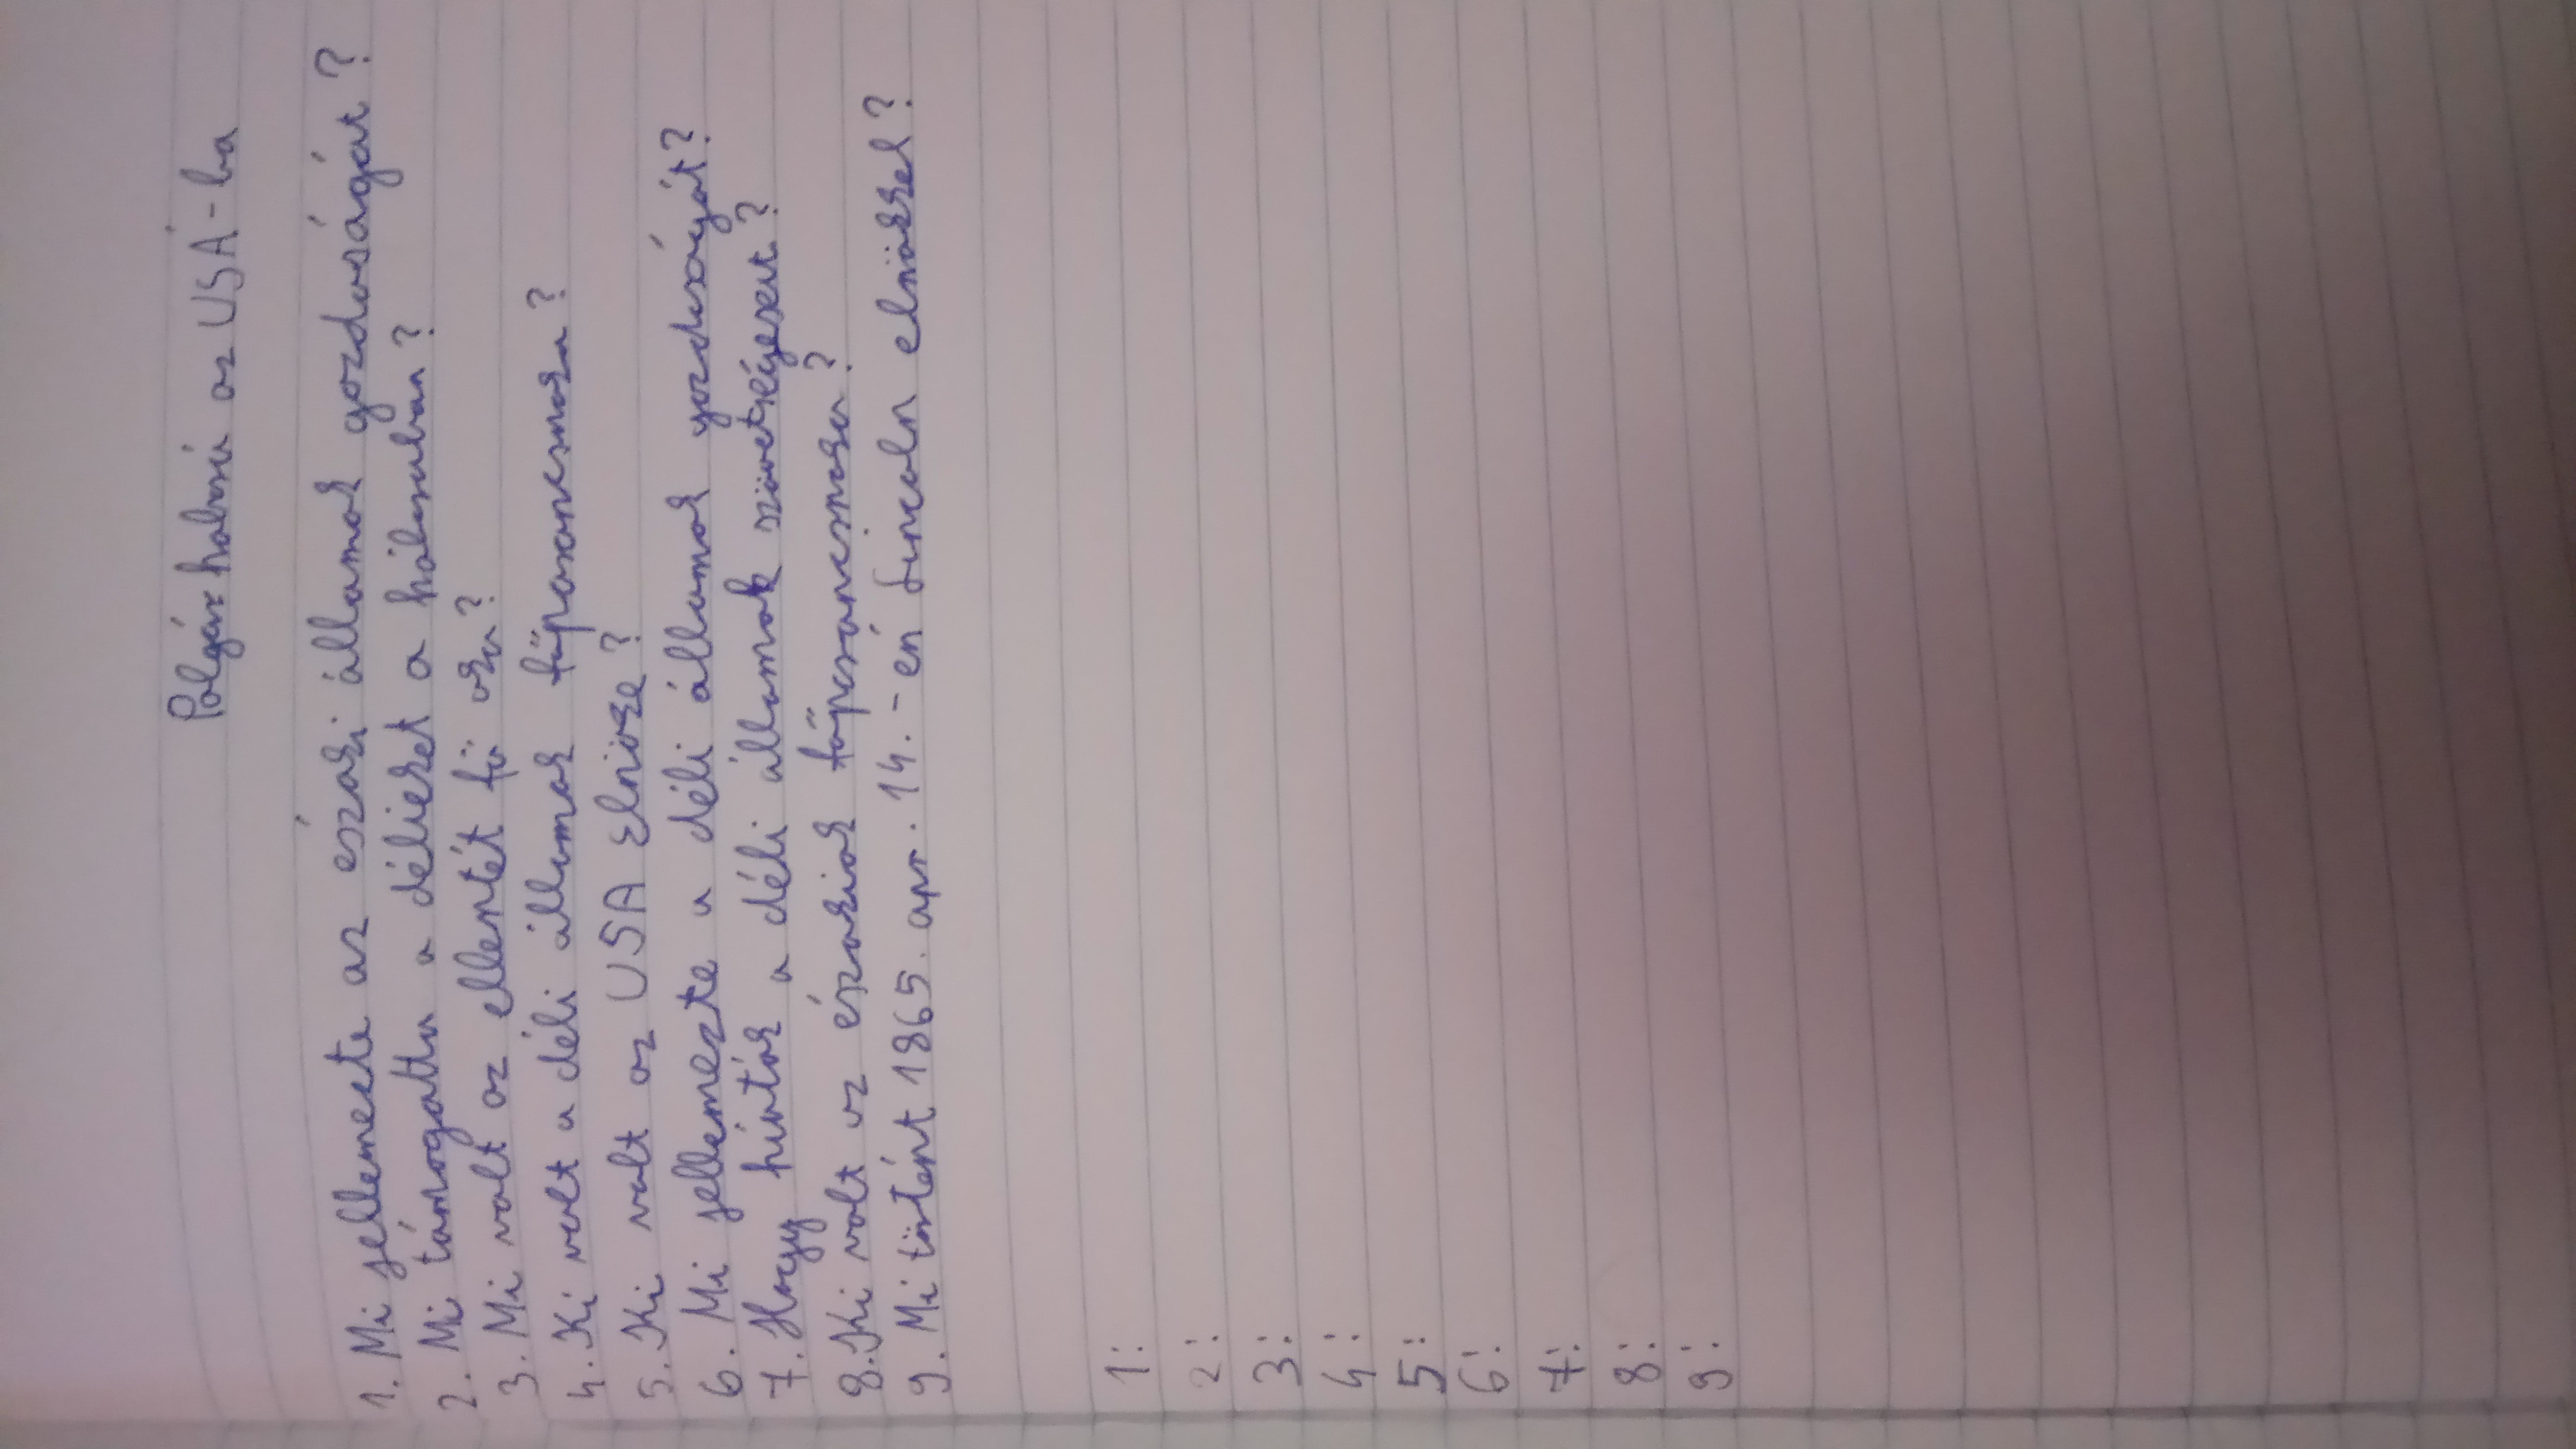 Polgár háború az USÁ-ba
1. Mi jellemezte az északi államok gazdaságát?
2. Mi támogatta a délieket a háborúban?
3. Mi volt az ellentét fő oka?
4. Ki volt a déli államok főparancsnoka?
5. Ki volt az USA Elnöke?
6. Mi jellemezte a déli államok gazdaságát?
7. Hogy hívták a déli államok szövetségeseit?
8. Ki volt az északiak főparancsnoka?
9. Mi történt 1865. apr. 14.-én Lincoln elnökkel?
1:
2:
3:
4:
5:
6:
7:
8:
9: